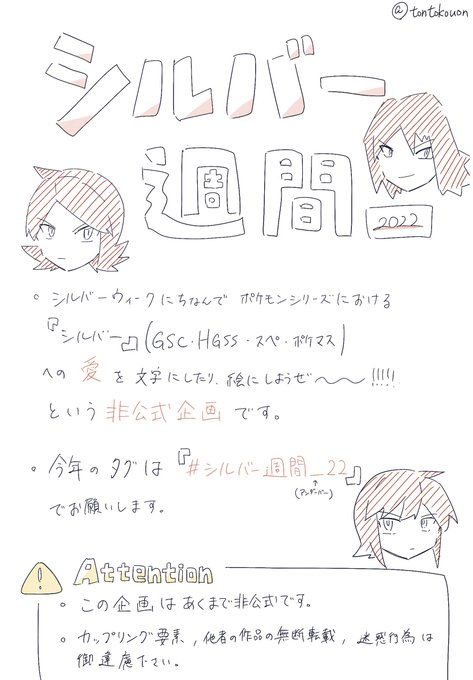 @tontokouon
シルバー
週間
2022
。シルバーウィークにちなんで ポケモンシリーズにおける
『シルバー』(GSC・HGSS・スペ・ポケマス)
への愛を文字にしたり、絵にしようぜ〜〜!!!!!
という非公式企画です。
。今年のタグは『#シルバー週間_22』
↑
(アンダーバー)
でお願いします。
Attention
。この企画はあくまで非公式です。
。カップリング要素，他者の作品の無断転載，迷惑行為は
御遠慮下さい。